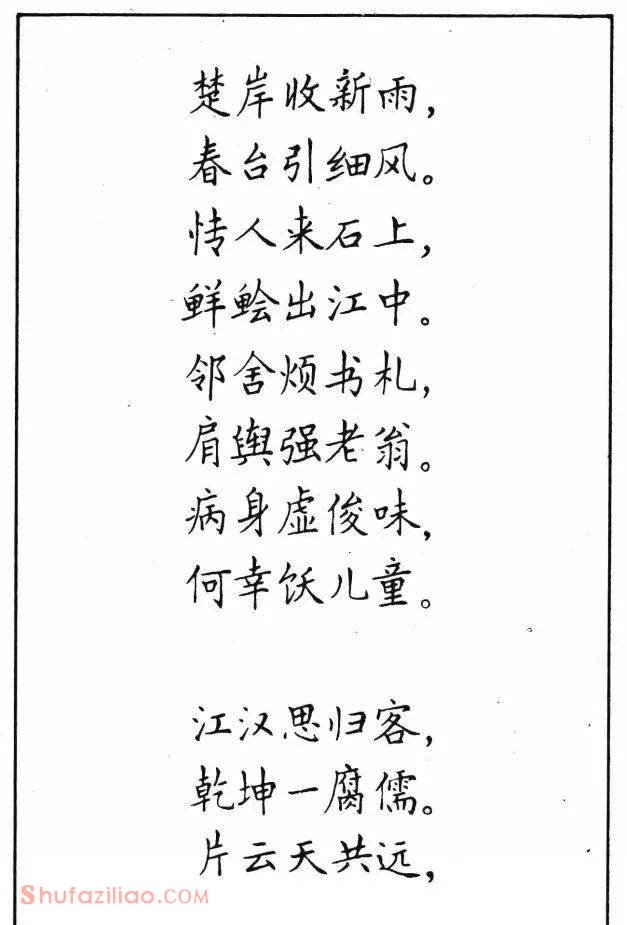 楚岸收新雨，
春台引细风。
情人来石上，
鲜鲙出江中。
邻舍烦书札，
肩舆强老翁。
病身虚俊味，
何幸饫儿童。
江汉思归客，
乾坤一腐儒。
片云天共远，
Shufaziliao.COM